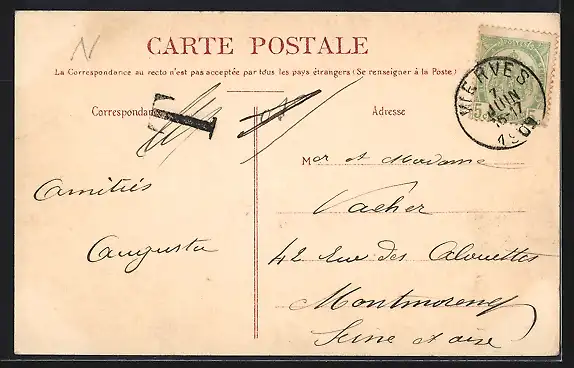 N
CARTE POSTALE
La Correspondance au recto n'est pas acceptée par tous les pays étrangers (Se renseigner à la Poste)
VIERVES
7
JUIN
1909
Correspondance
T
Adresse
Mor et Madame
Vacher
42 Rue des Alouettes
Montmorency
Seine et oise
Amitiés
Augusta